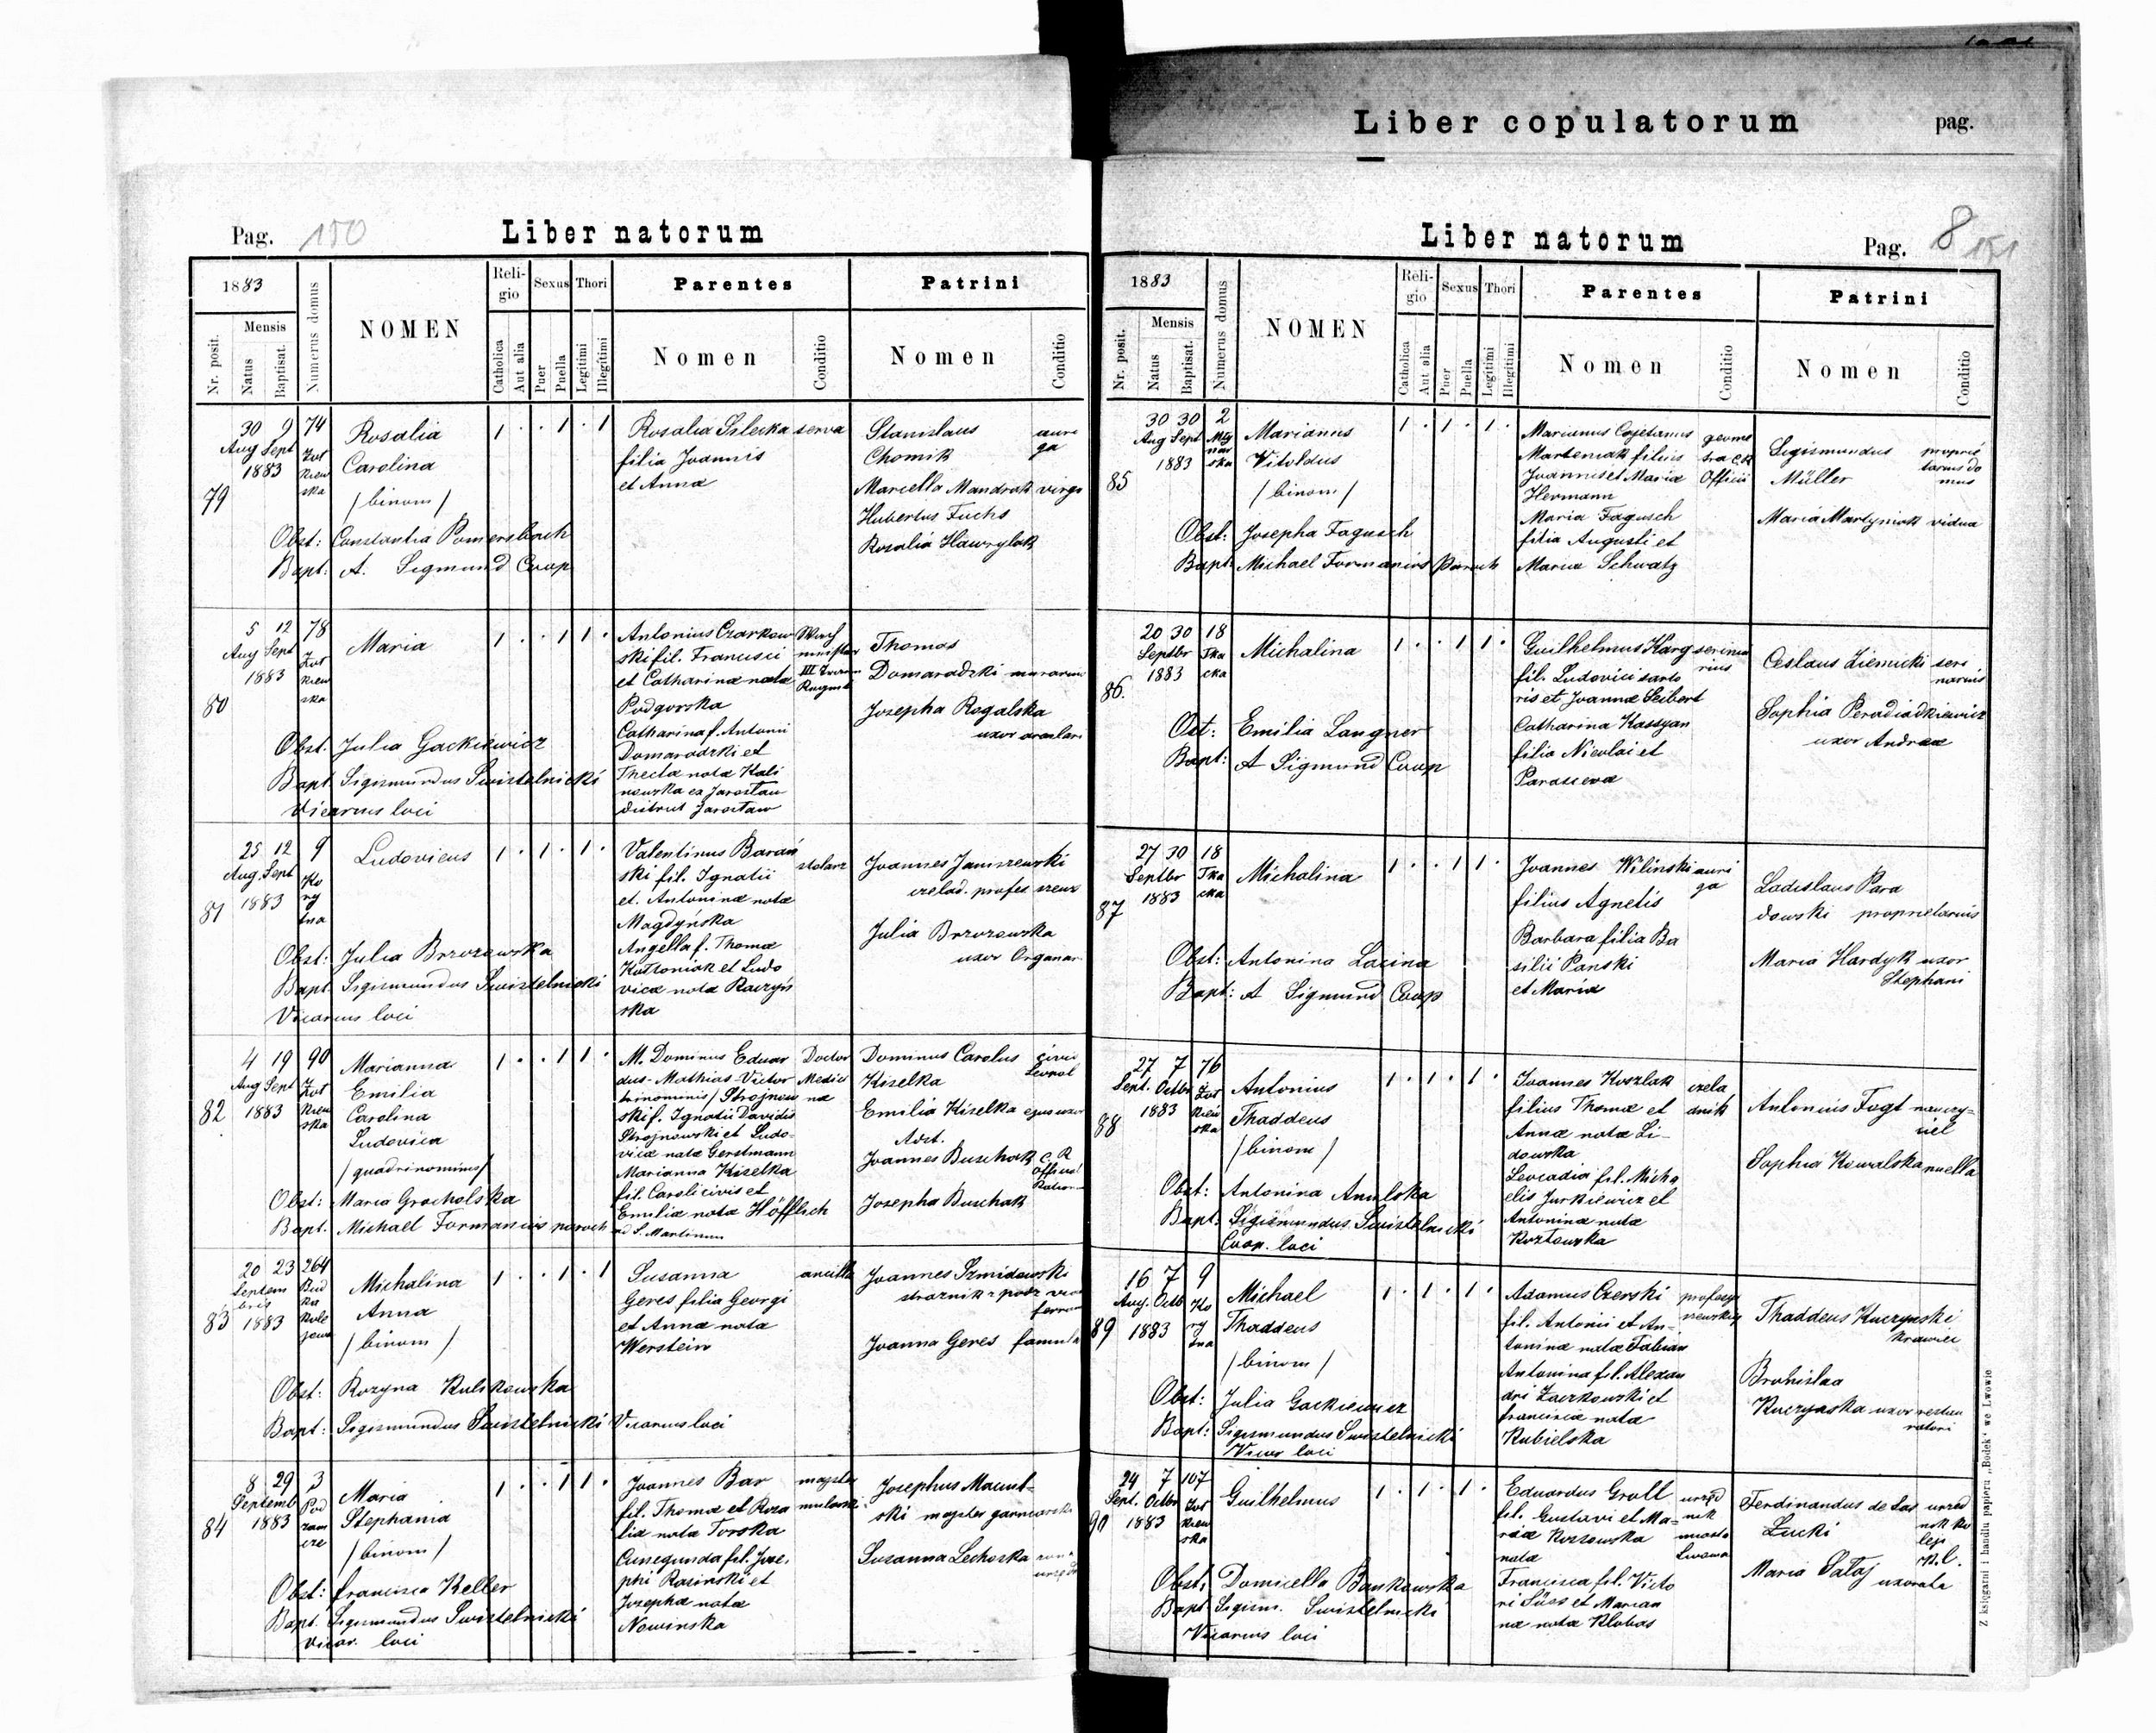 Liber copulatorum pag.
Pag. 150 Liber natorum
1883
Nr. posit.
Mensis
Natus
Baptisat.
Numerus domus
NOMEN
Religio
Catholica
Aut alia
Sexus
Puer
Puella
Thori
Legitimi
Illegitimi
Parentes
Nomen
Conditio
Patrini
Nomen
Conditio
79
30 9 74
Aug Sept
1883
Żół
kiew
ska
Rosalia
Carolina
/binom/
Obst: Constantia Pomersbach
Bapt: A. Sigmund Coop
1 . . 1 . 1
Rosalia Szlecka serva
filia Joannis
et Anna
Stanislaus auri
Chomik ga
Marcella Mandrak virgo
Hubertus Fuchs
Rosalia Hawrylak
80
5 12 78
Aug Sept
1883
Żół
kiew
ska
Maria
Obst. Julia Gackiewicz
Bapt. Sigismundus Swistelnicki
Vicarius loci
1 . . 1 1 .
Antonius Czarkow
ski fil. Francisci
et Catharina nata
Podgorska
Catharina f. Antonii
Domaradzki et
Thecla nata Kali
nowska ex Jarosław
district Jarosław
Wach
meister
III
Thomas
Domaradzki murarius
Josepha Rogalska
uxor
81
25 12 9
Aug. Sept
1883
Ko
ry
tna
Ludovicus
Obst: Julia Brzozowska
Bapt. Sigismundus Swistelnicki
Vicarius loci
1 . 1 . 1 .
Valentinus Barań
ski fil. Ignatii
et. Antonina nata
Magdyńska
Angella f. Thoma
Kołtoniak et Ludo
vica nata Raczyń
ska
stolarz
Joannes Janiszewski
czelad. profes szews
Julia Brzozowska
uxor Organar
82
4 19 90
Aug Sept
1883
Żół
kiew
ska
Marianna
Emilia
Carolina
Ludovica
/quadrinominis/
Obst: Maria Grocholska
Bapt. Michael Formanios paroch ad S. Martinum
1 . . 1 1 .
M. Dominus Eduar
dus-Mathias-Victor
trinominis/ Strojnow
ski f. Ignatii Davidis
Strojnowski et Ludo-
vica nata Gerstmann
Marianna Kiselka
fil. Caroli civis et
Emilia nata Höfflich
Doctor
Medici
na
Dominus Carolus civis
Kiselka Leopol
Emilia Kiselka ejus uxor
Adst.
Joannes Buschak C. R
Josepha Buschak
83
20 23 264
Septem
bris
1883
Michalina
Anna
/binom/
Obst: Rozyna Kulikowska
Bapt: Sigismundus Swistelnicki Vicarius loci
1 . . 1 . 1
Susanna ancilla
Geres filia Georgi
et Anna nata
Werstein
Joannes Szmidowski
strażnik
Joanna Geres famula
84
8 29 3
Septemb
1883
Pod
zam
cze
Maria
Stephania
/binom/
Obst: Francisca Keller
Bapt. Sigismundus Swistelnicki
Vicar. loci
1 . . 1 1 .
Joannes Bar majster
fil. Thoma et Rosa mularski
lia nata Torska
Cunegunda fil. Jose,
phi Rasinski et
Josepha nata
Nowinska
Josephus Maciul-
ski majster garncarski
Susanna Lechoska
Liber natorum Pag. 8 151
1883
Nr. posit.
Mensis
Natus
Baptisat.
Numerus domus
NOMEN
Religio
Catholica
Aut alia
Sexus
Puer
Puella
Thori
Legitimi
Illegitimi
Parentes
Nomen
Conditio
Patrini
Nomen
Conditio
85
30 30 2
Aug Sept
1883
Mły
nar
ska
Marianus
Vitoldus
/binom/
Obst: Josepha Fagusch
Bapt: Michael Formanios Paroch
1 . 1 . 1 .
Marianus Cajetanus
Marteniak filius
Joannis et Maria
Hermann
Maria Fagusch
filia Augusti et
Maria Schwatz
geome
tra CR
Officii
Sigismundus proprie
Müller tarius do
mus
Maria Martyniak vidua
86.
20 30 18
Septbr
1883
Tka
cka
Michalina
Ost: Emilia Langner
Bapt: A Sigmund Coop
1 . . 1 1 .
Guilhelmus Karg serina
fil. Ludovici sarto rius
ris et Joanna Seibert
Catharina Kassyan
filia Nicolai et
Parasceva
Ceslaus Ziemicki seri
narius
Sophia Peradiadkiewicz
uxor Andrea
87
27 30 18
Septbr
1883
Tka
cka
Michalina
Obst: Antonina Lacina
Bapt: A Sigmund Coop
1 . . 1 1 .
Joannes Wilinski auri
filius Agnetis ga
Barbara filia Ba
silii Panski
et Maria
Ladislaus Para
dowski proprietarius
Maria Hardyk uxor
Stephani
88
27 7 76
Sept. Octbr
1883
Żół
kiew
ska
Antonius
Thaddeus
/binom/
Obst: Antonina Anulska
Bapt: Sigismundus Swistelnicki
Coop. loci
1 . 1 . 1 .
Joannes Koszlak czela
filius Thoma et dnik
Anna nata Li-
dowska
Leocadia fil. Micha
elis Jurkiewicz et
Antonina nata
Kozłowska
Antonius Fogt nauczy=
ciel
Sophia Kowalska puella
89
16 7 9
Aug. Octb
1883
Ko
ry
tna
Michael
Thaddeus
/binom/
Obst: Julia Gackiewicz
Bapt: Sigismundus Swistelnicki
Vicar loci
1 . 1 . 1 .
Adamus Czerski
fil. Antonii et An-
tonina nata Fabian
Antonina fil. Alexan
dri Zaczkowski et
Francisca nata
Kubielska
Thaddeus Kuczynski
krawiec
Bronislaa
Kuczynska uxor
90
24 7 107
Sept. Octbr
1883
Żół
kiew
ska
Guilhelmus
Obst: Domicella Bankowska
Bapt: Sigism. Swistelnicki
Vicarius loci
1 . 1 . 1 .
Eduardus Groll
fil. Gustavi et Ma=
ria Kossowska
nata
Francisca fil. Victo
ri Süss et Marian
na nata Klobas
urzęd
nik
miasta
Lwowa
Ferdinandus de Las urzęd
Zucki nik ko
lej
K. l.
Maria Sataj
uxorata
Z księgarni i handlu papieru „Bodek“ we Lwowie